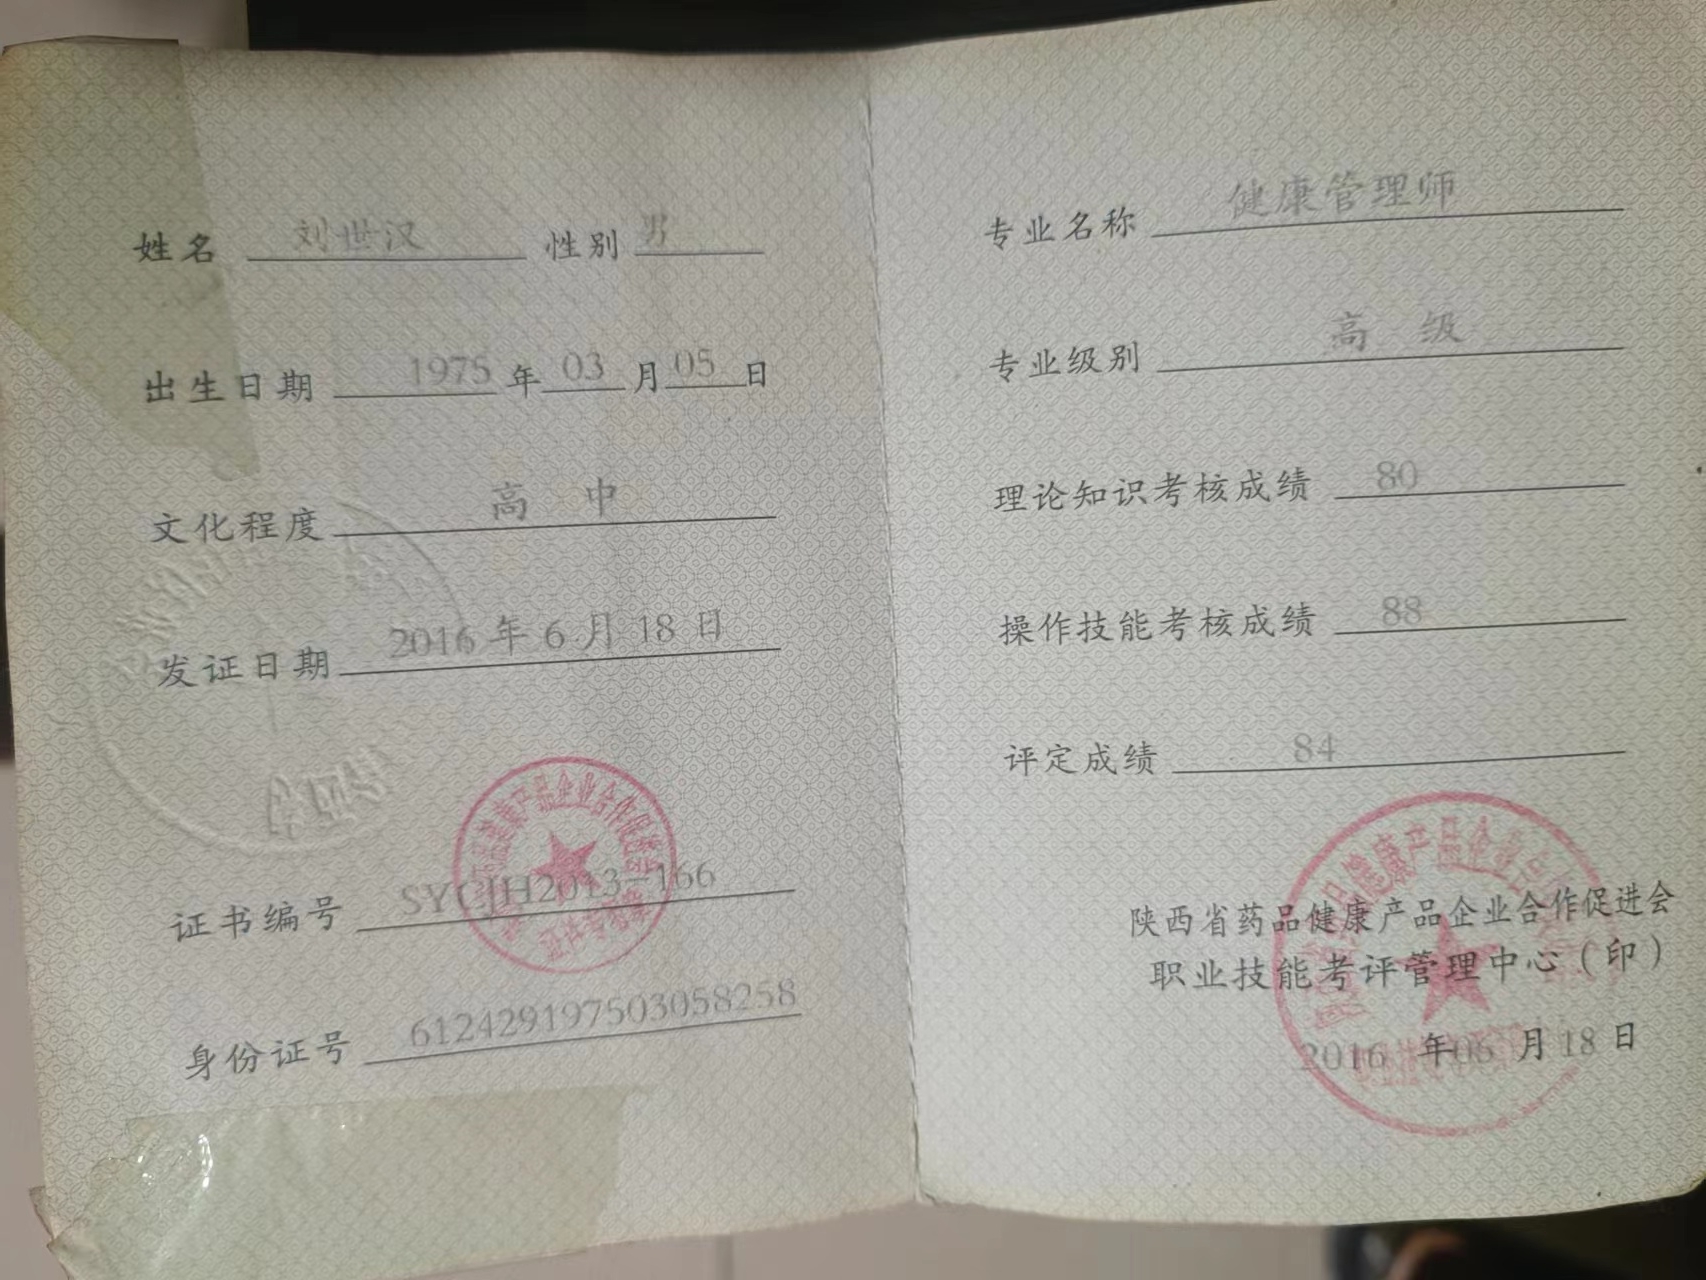 姓名 刘世汉 性别 男
出生日期 1975 年 03 月 05 日
文化程度 高 中
发证日期 2016 年 6 月 18 日
证书编号 SYCJH2013-166
身份证号 612429197503058258
专业名称 健康管理师
专业级别 高 级
理论知识考核成绩 80
操作技能考核成绩 88
评定成绩 84
陕西省药品健康产品企业合作促进会
职业技能考评管理中心（印）
2016 年 06 月 18 日
健康产品企业合作促进会
品健康产品企业合作